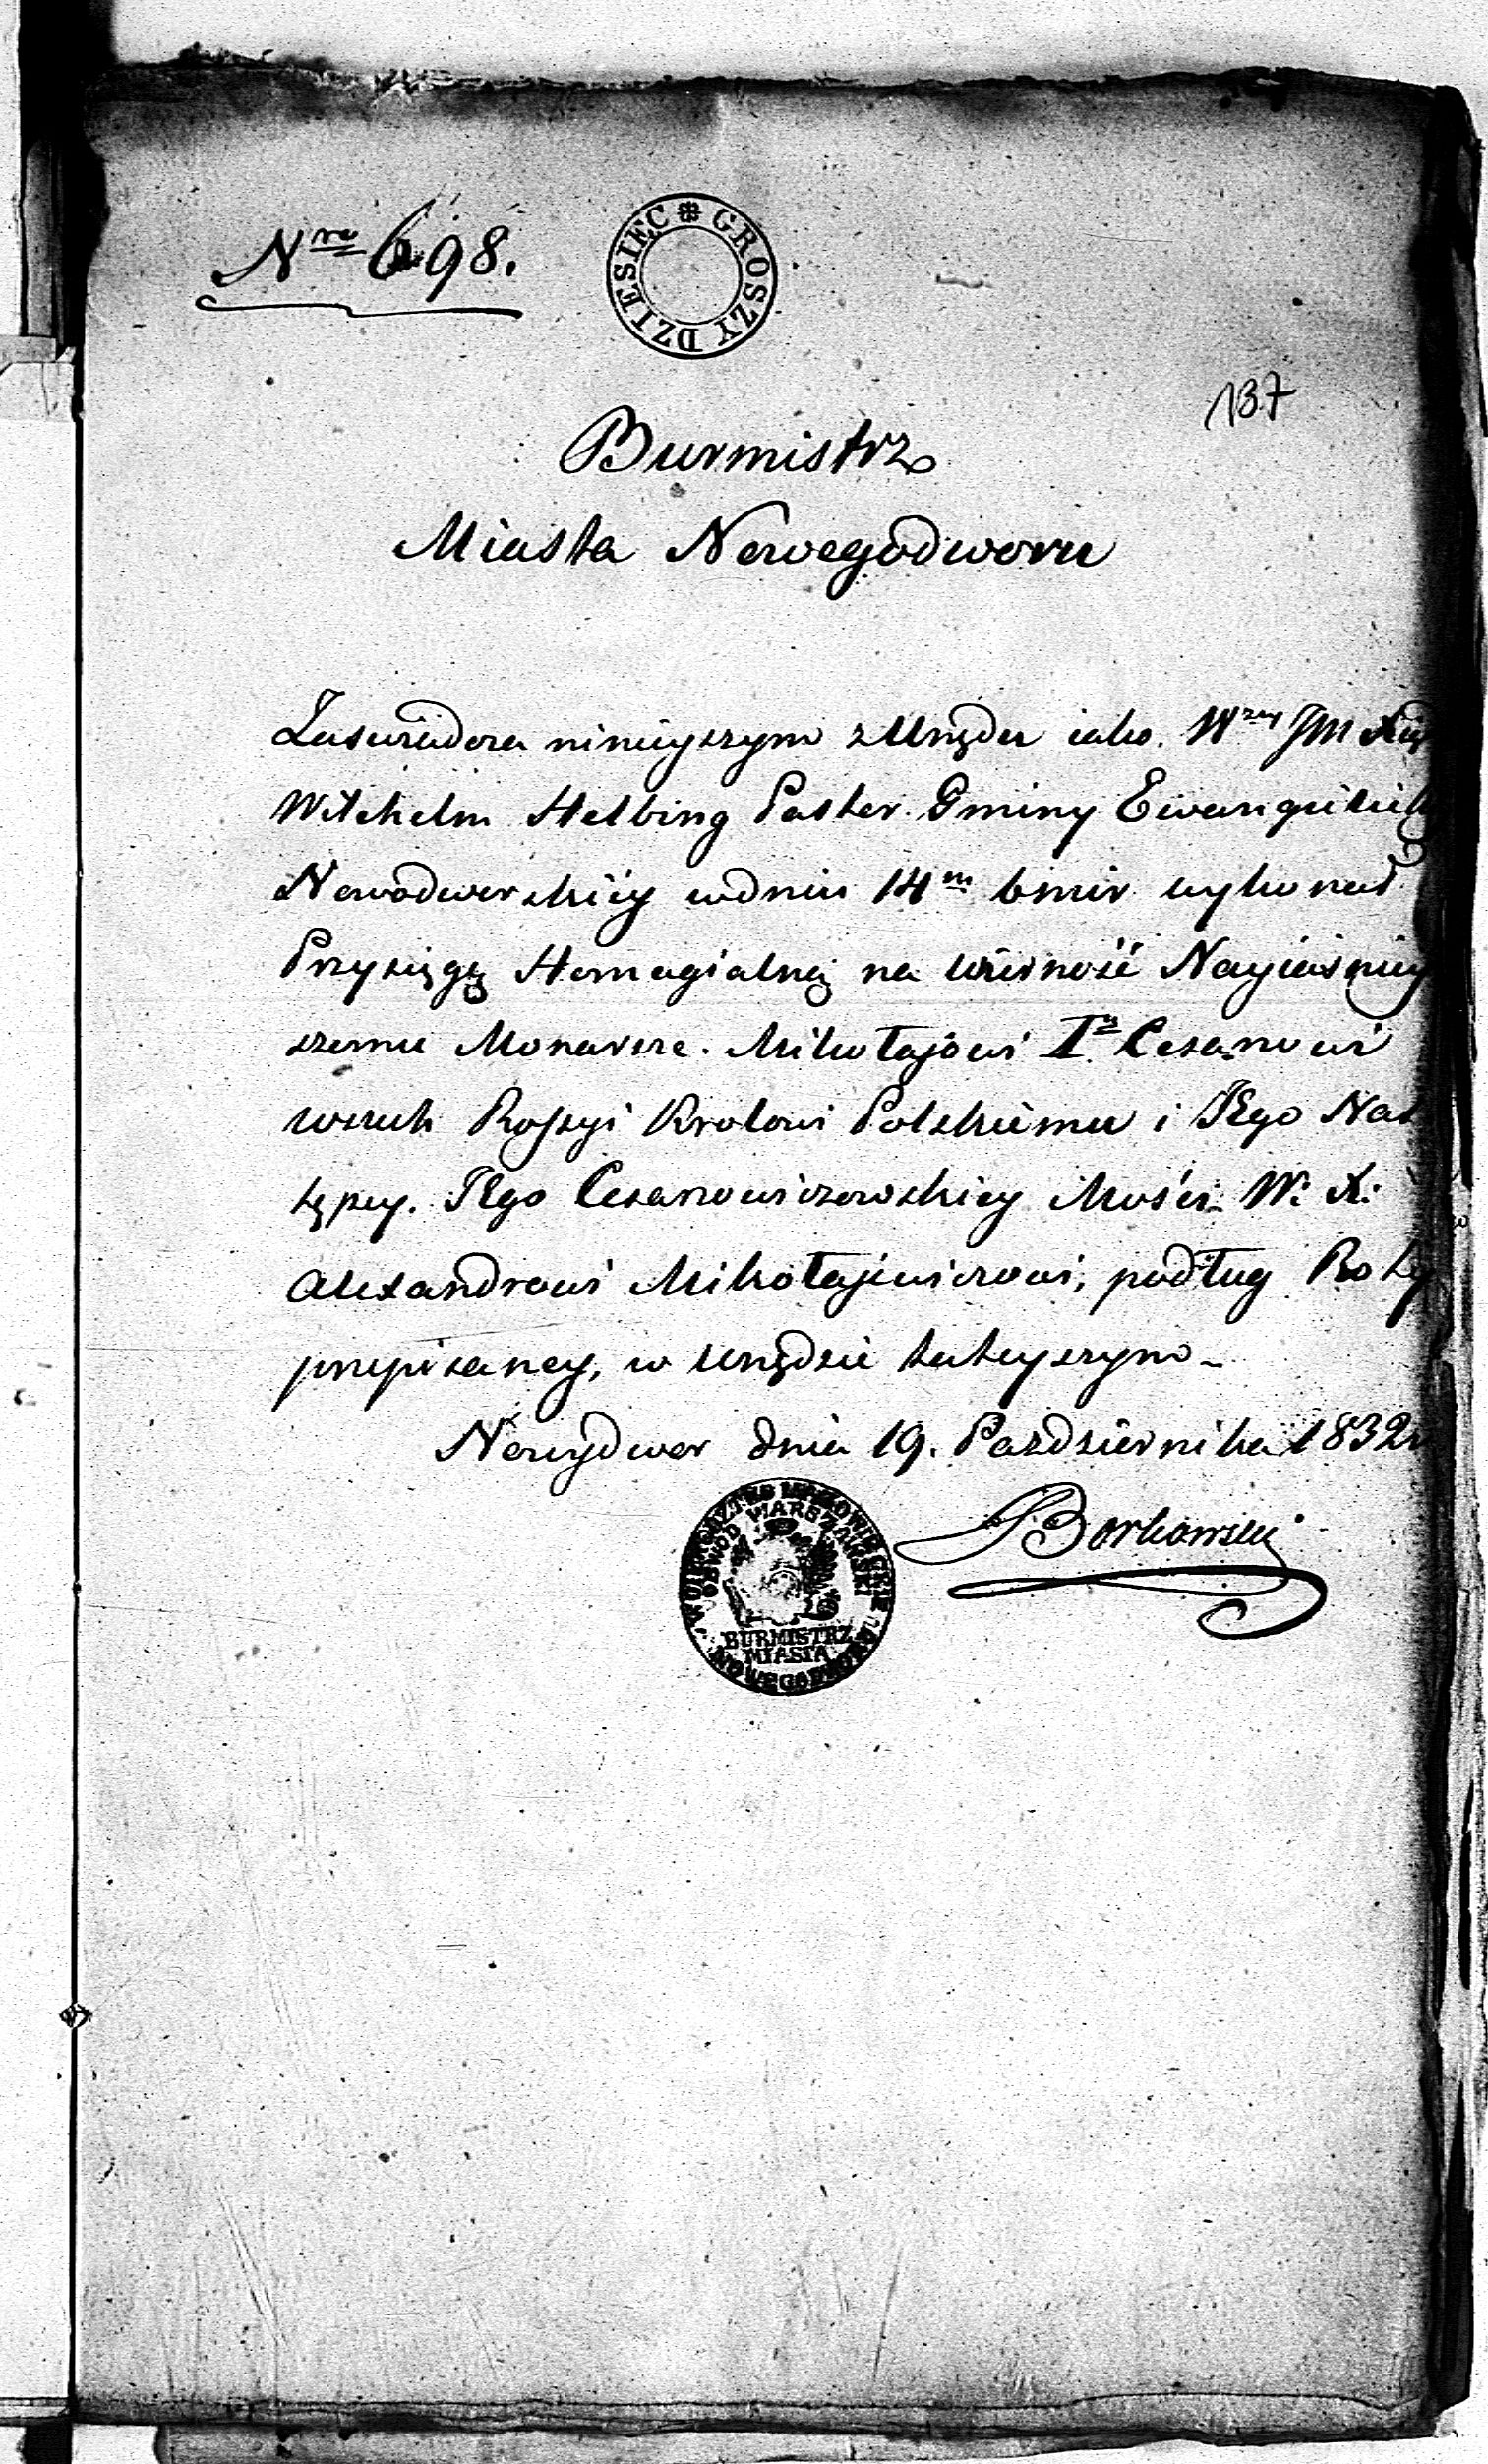 Nro 698.
GROSZY DZIESIEC
137
Burmistrz
Miasta Nowegodworu
Zaświadcza ninieyszym z Urzędu iako Wny JM Xią
Wilhelm Helbing Pastor Gminy Ewangelicki
Nowodworskiéy w dniu 14m bmir wykonał
Przysięgę Homagialną na wierność Nayiaśniey
szemu Monarsze. Mikołajowi Iu Cesarzowi
wszech Rossyi Krolowi Polskiemu i JEgo Nas
tępcy. JEgo Cesarzowiczowskiey Mości W. X.
Alexandrowi Mikołajewiczowi, podług Roty
przepisaney, w Urzędzie tuteyszym
Nowydwor dnia 19. Pazdziernika 1832r
Borkowski
WOIEWODZTWO MAZOWIECKIE
OBWOD WARSZAWSKI
BURMISTRZ
MIASTA
NOWEGODWORU